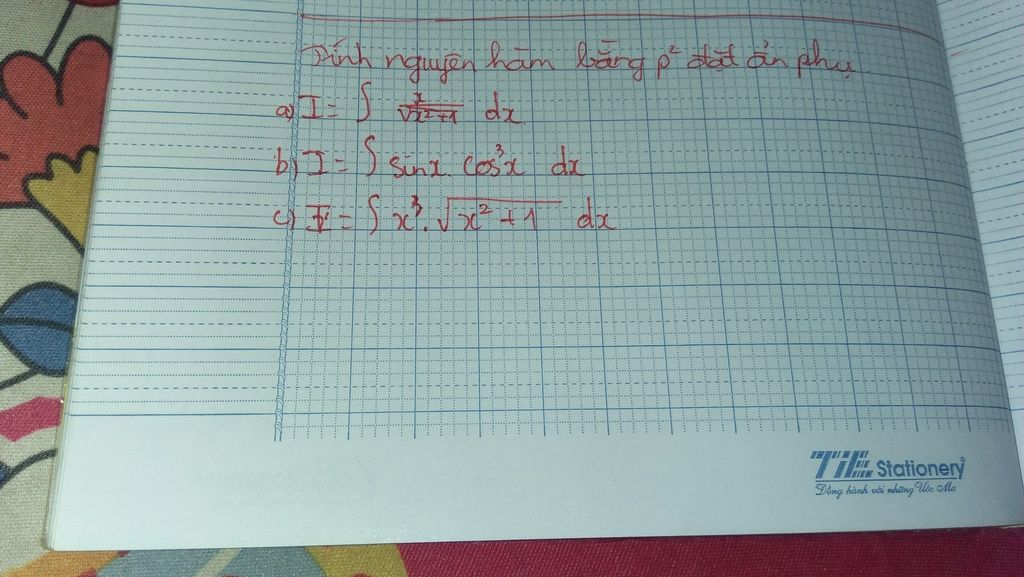 Tính nguyên hàm bằng p² đặt ẩn phụ
a) I = ∫ x/√(x²+1) dx
b) I = ∫ sinx. cos³x dx
c) I = ∫ x³. √(x² + 1) dx
TiE Stationery
Đồng hành với những Ước Mơ